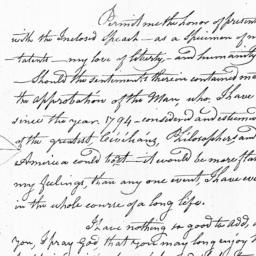 Permit me the honor of present
with the Inclosed Speach - as a Specimen of m
talents - my love of liberty, - and humanity
- Should the sentiments therein contained m
the approbation of the Man, who, I have
since the year. 1794 - considered and esteemed
of the greatest Civilians, Philosophers and
America could bost - it would be more flat
my feelings than any one event, I have ev
in the whole course of a long life.
I have nothing so good to add,
you, I pray God that you may long enjoy t